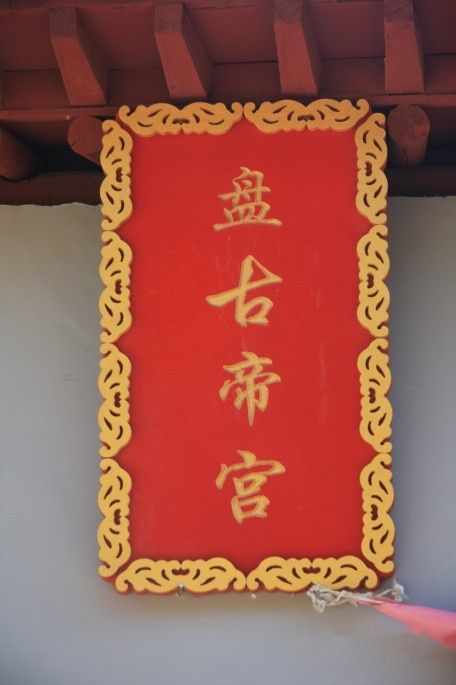 盘古帝宫